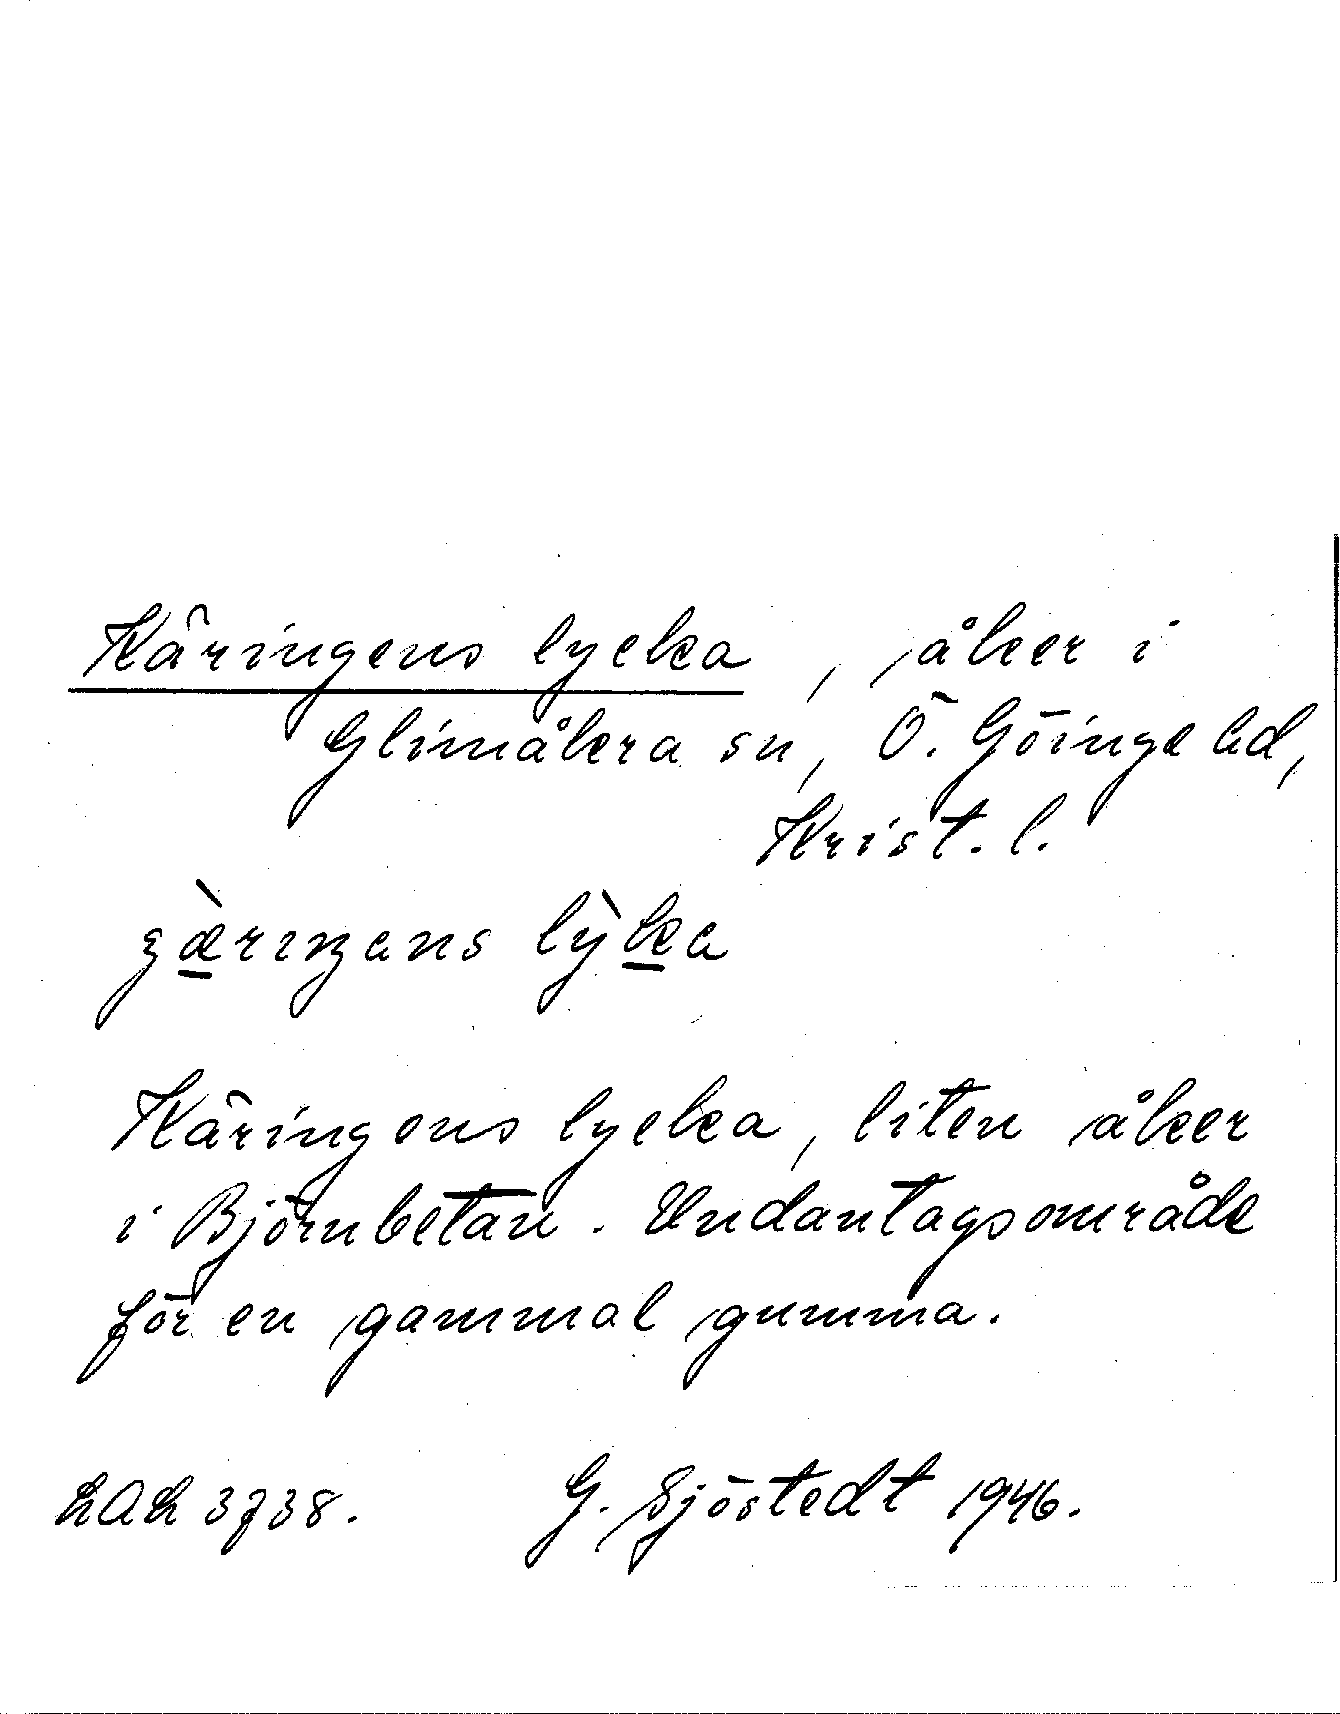 Käringens lycka, åker i
Glimåkra sn, Ö. Göinge hd,
Krist. l.
Käringens lycka, liten åker
i Björnbetan. Undantagsområde
för en gammal gumma.
LAL 3738. G. Sjöstedt 1946.